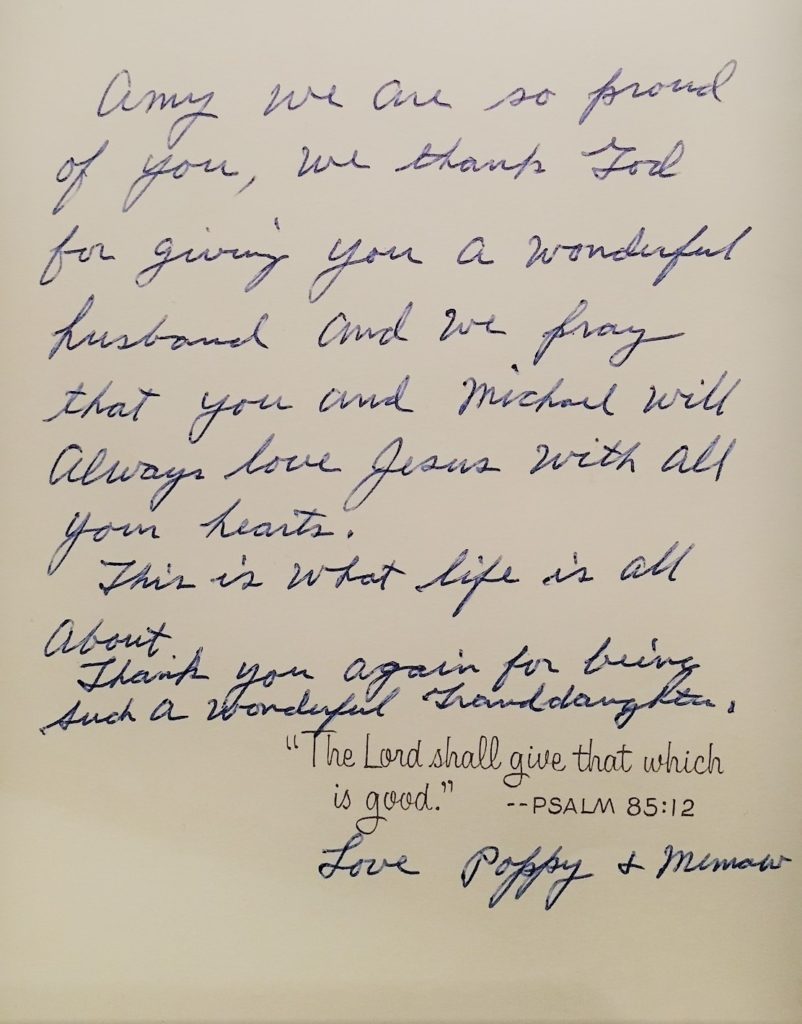 Amy we are so proud
of you, we thank God
for giving you a wonderful
husband and we pray
that you and Michael will
Always love Jesus with all
your hearts.
This is what life is all
About.
Thank you again for being
such a wonderful Granddaughter.
"The Lord shall give that which
is good." --PSALM 85:12
Love Poppy & Memaw